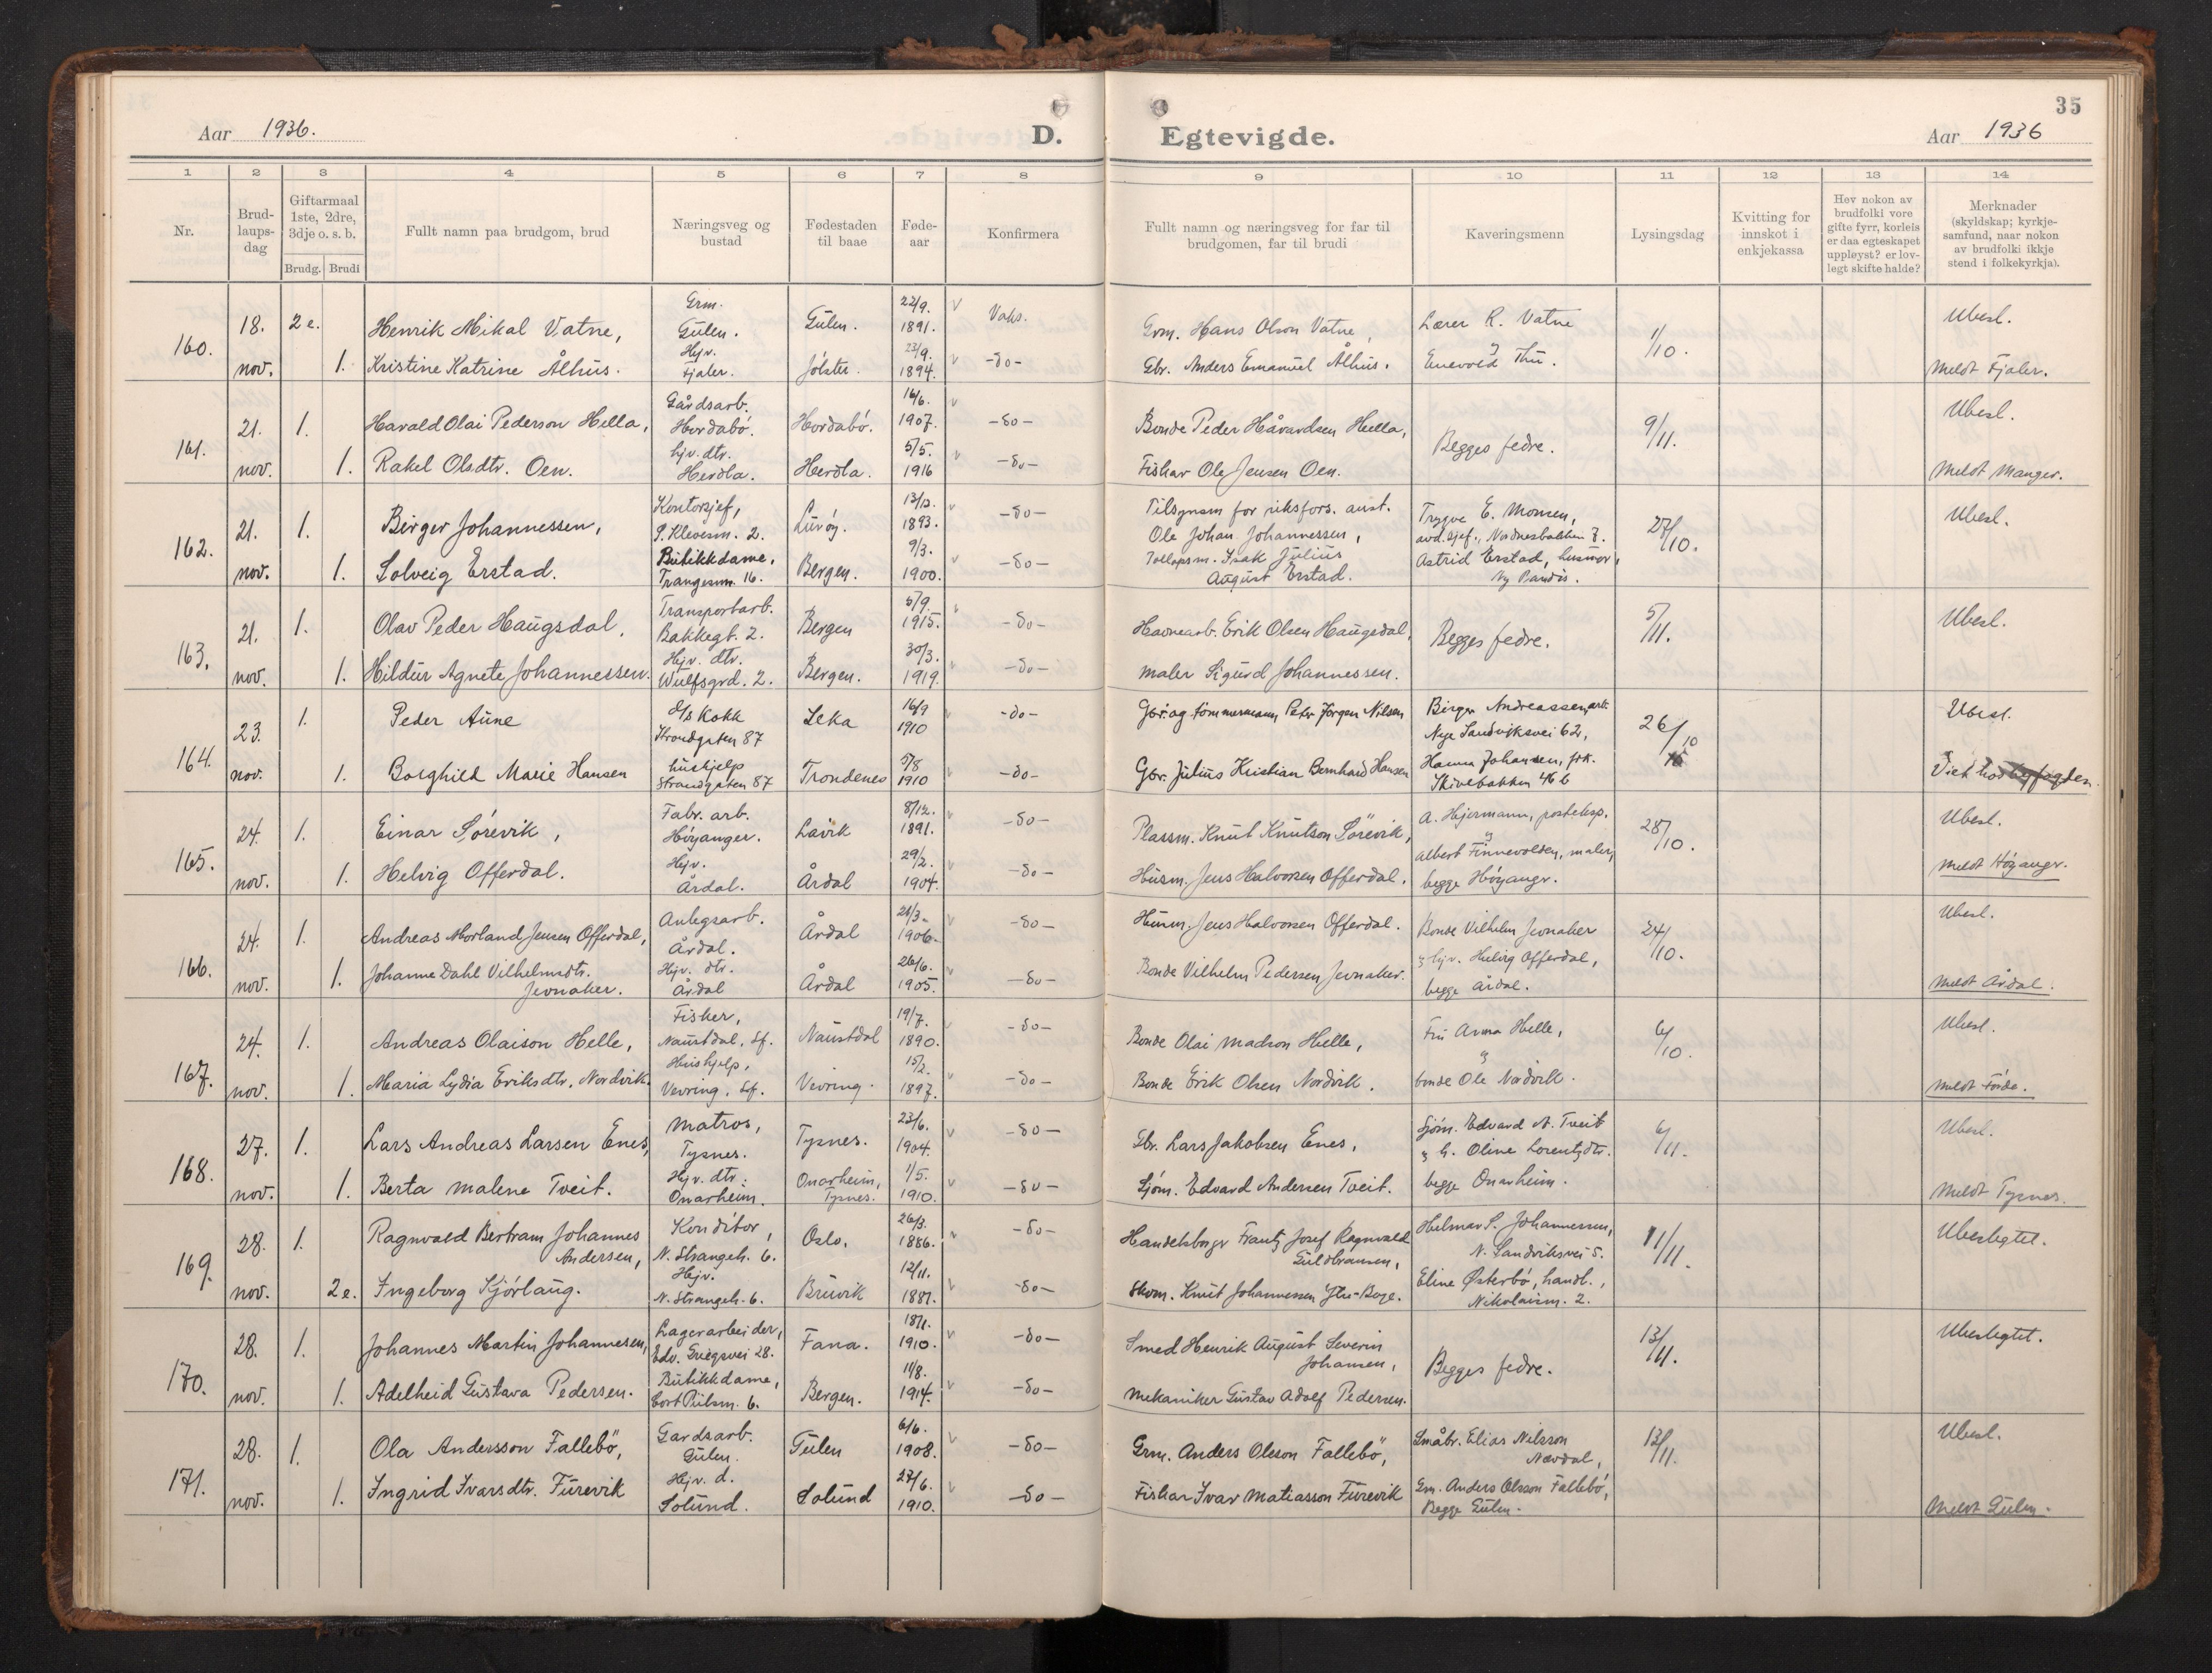 Aar 1936.
D.
Egtevigde.
35
Aar 1936
1 2 3 4 5 6 7 8 9 10 11 12 13 14
Nr.
Brud-
laups-
dag
Giftarmaal
1ste, 2dre,
3dje o. s. b.
Brudg. Brudi
Fullt namn paa brudgom, brud
Næringsveg og
bustad
Fødestaden
til baae
Føde-
aar
Konfirmera
Fullt namn og næringsveg for far til
brudgomen, far til brudi
Kaveringsmenn
Lysingsdag
Kvitting for
innskot i
enkjekassa
Hev nokon av
brudfolki vore
gifte fyrr, korleis
er daa egteskapet
uppløyst? er lov-
legt skifte halde?
Merknader
(skyldskap; kyrkje-
samfund, naar nokon
av brudfolki ikkje
stend i folkekyrkja).
160.
18. nov.
2 e. Henrik Mikal Vatne, Grm. Gulen. Gulen. 22/9. 1891. Vaks. Grm. Hans Olson Vatne, Lærer R. Vatne 1/10. Ubesl.
1. Kristine Katrine Ålhus. Hjv. Fjaler. Jølster. 23/9. 1894. -do- Gbr. Anders Emanuel Ålhus. Enevold Thu. Meldt Fjaler.
161.
21. nov.
1. Harald Olai Pederson Hella, Gårdsarb. Hordabø. Hordabø. 16/6. 1907. -do- Bonde Peder Håvardsen Hella, Begges fedre. 9/11. Ubesl.
1. Rakel Olsdtr. Oen. hjv. dtr. Herdla. Herdla. 5/5. 1916 -do- Fiskar Ole Jensen Oen. Meldt Manger.
162.
21. nov.
1. Birger Johannessen, Kontorsjef, P. Klevesm. 2. Lurøy. 1893. -do- Tilsynsm for riksfors. anst. Ole Johan Johannessen, Trygve E. Monsen, avd. sjef., Nordnesbakken 7. 27/10. Ubesl.
1. Solveig Erstad. Butikkdame, Trangesm. 16. Bergen. 9/3. 1900. -do- Tollopsm. Isak Julius August Erstad. Astrid Erstad, husmor, Ny Paradis.
163.
21. nov.
1. Olav Peder Haugsdal, Transportarb. Bakkegt. 2. Bergen 5/9. 1915. -do- Havnearb. Erik Olsen Haugsdal, Begges fedre. 5/11. Ubesl.
1. Hildur Agnete Johannessen. Hjv. dtr. Wulfsgrd. 2. Bergen. 30/3. 1919. -do- Maler Sigurd Johannessen.
164.
23. nov.
1. Peder Aune d/s Kokk Strandgaten 87 Leka 16/9 1910 -do- Gbr. og tømmermann Peter Jørgen Nilsen Birger Andreassen, arb. Nye Sandviksvei 62, 26/10 Ubesl.
1. Borghild Marie Hansen hushjelp Strandgaten 87 Trondenes 5/8 1910 -do- Gbr. Julius Kristian Bernhard Hansen Hanna Johansen, frk. Skivebakken 46 b Viet hos byfogden
165.
24. nov.
1. Einar Sørevik, Fabr. arb. Høyanger. Lavik 8/12. 1891. -do- Plassm. Knut Knutson Sörevik, A. Hjermann, posteksp. 28/10. Ubesl.
1. Helvig Offerdal. Hjv. Årdal. Årdal 29/2. 1904. -do- Husm. Jens Halvorsen Offerdal. Albert Finnevolden, maler, begge Høyangr. Meldt Höyangr.
166.
24. nov.
1. Andreas Morland Jensen Offerdal, Anlegsarb. Årdal. Årdal 21/3. 1906. -do- Husm. Jens Halvorsen Offerdal. Bonde Vilhelm Jevnaker 24/10. Ubesl.
1. Johanne Dahl Vilhelmsdtr. Jevnaker. Hjv. dtr. Årdal Årdal 26/6. 1905. -do- Bonde Vilhelm Pedersen Jevnaker. hjv. Helvig Offerdal, begge Årdal. Meldt Årdal.
167.
24. nov.
1. Andreas Olaison Helle, Fisker, Naustdal, Sf. Naustdal 19/7. 1890. -do- Bonde Olai Madson Helle, Fru Anna Helle, 6/10. Ubesl.
1. Maria Lydia Eriksdtr. Nordvik. Hushjelp, Vevring, Sf. Vevring. 15/2. 1897. -do- Bonde Erik Olsen Nordvik. bonde Ole Nordvik. Meldt Förde.
168.
27. nov.
1. Lars Andreas Larsen Enes, Matros, Tysnes. Tysnes. 23/6. 1904. -do- Gbr. Lars Jakobsen Enes, Sjøm. Edvard A. Tveit 6/11. Ubesl.
1. Berta Malene Tveit. Hjv. dtr. Onarheim. Onarheim, Tysnes. 1/5. 1910. -do- Sjøm. Edvard Andersen Tveit. G. Oline Lorentzdtr. begge Onarheim. Meldt Tysnes.
169.
28. nov.
1. Ragnvald Bertram Johannes Andersen, Konditor, N. Strangeh. 6. Oslo. 26/3. 1886. -do- Handelsborgr Frantz Josef Ragnvald Guldbransen, Helmar S. Johannessen, N. Sandviksvei 5. 11/11. Ubeslegtet.
2 e. Ingeborg Kjørlaug. Hjv. N. Strangeh. 6. Bruvik 12/11. 1887. -do- Skom. Knut Johannessen Ytre-Boge. Eline Østerbø, handl., Nikolaism. 2.
170.
28. nov.
1. Johannes Martin Johannesen, Lagerarbeider, Edv. Griegsvei 28. Fana. 18/1. 1910. -do- Smed Henrik August Severin Johansen, Begges fedre. 13/11. Ubeslegtet.
1. Adelheid Gustava Pedersen. Butikkdame, Cort Piilsm. 6. Bergen. 11/8. 1914. -do- Mekaniker Gustav Adolf Pedersen.
171.
28. nov.
1. Ola Andersson Fallebö, Gardsarb. Gulen. Gulen 6/6. 1908. -do- Grm. Anders Oleson Fallebö, Småbr. Elias Nilsson Nævdal, 13/11. Ubesl.
1. Ingrid Ivarsdtr. Furevik Hjv. d. Solund. Solund 27/6. 1910. -do- Fiskar Ivar Matiasson Furevik Gm. Anders Olsson Fallebö, Begge Gulen. Meldt Gulen.